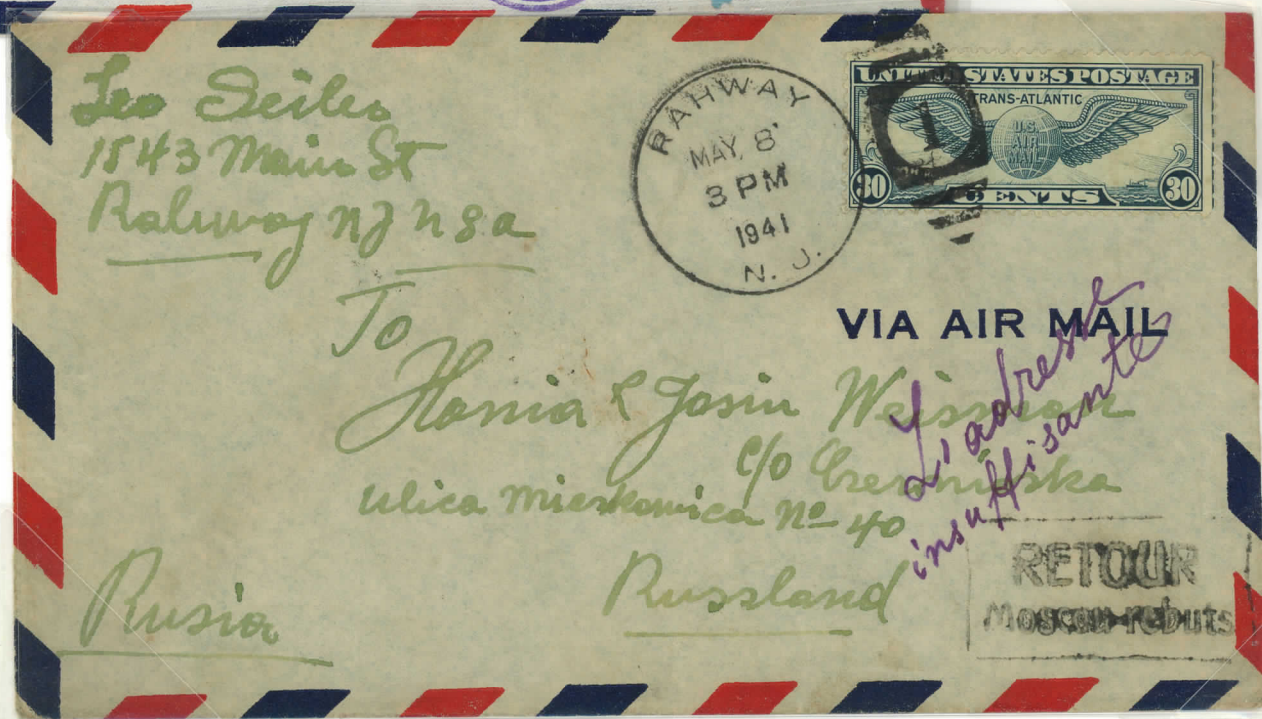 Leo Seiler
1543 Main St
Rahway NJ USA
RAHWAY
MAY 8
3 PM
1941
N. J.
UNITED STATES POSTAGE
TRANS-ATLANTIC
U.S.
AIR
MAIL
30 CENTS 30
1
VIA AIR MAIL
To
Hania & Josiu Weissman
c/o
Ulica Mieskowica No 40
Russland
Rusia
L'adresse
insuffisante
RETOUR
Moscou-rebuts